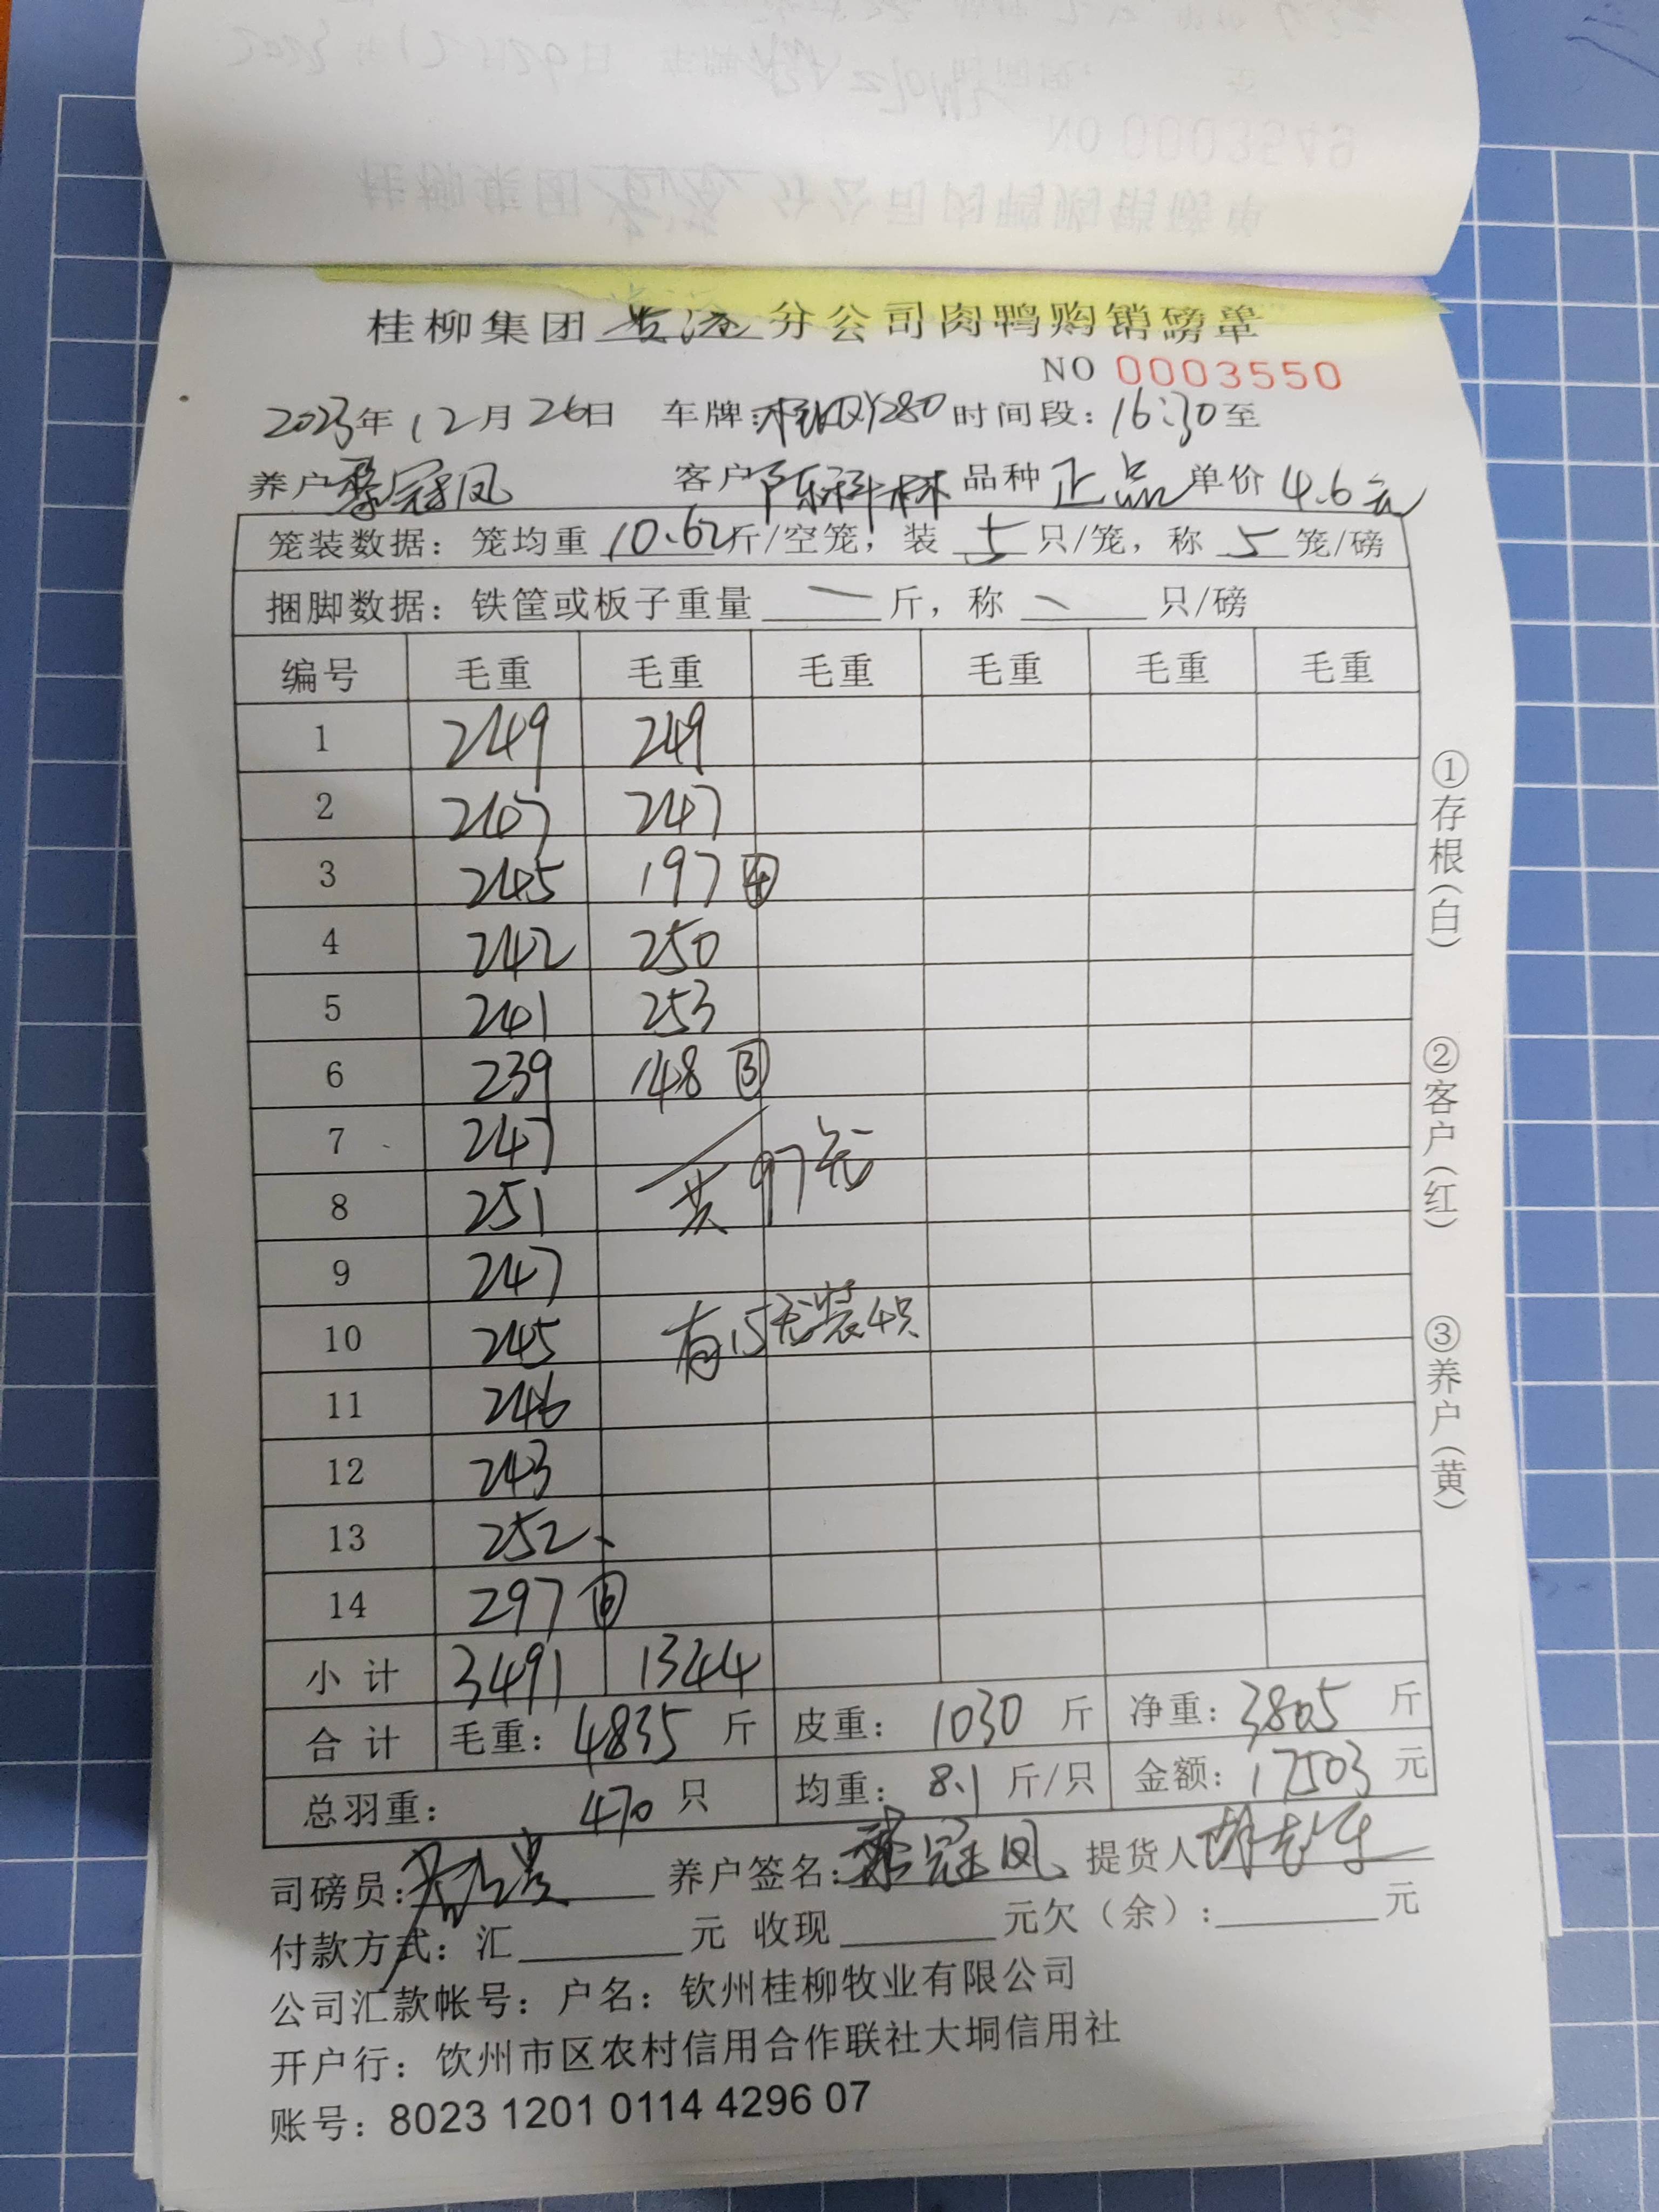 桂柳集团 分公司肉鸭购销磅单
NO 0003550
2023年12月26日 车牌: QY280 时间段: 16:30至
养户 冠凤 客户 陈科林 品种 正品 单价 4.6元
笼装数据: 笼均重 10.62 斤/空笼, 装 5 只/笼, 称 5 笼/磅
捆脚数据: 铁筐或板子重量 — 斤, 称 — 只/磅
编号 毛重 毛重 毛重 毛重 毛重 毛重
1 249 249
2 247 247
3 245 197 ④
4 242 250
5 241 253
6 239 148 ③
7 247
共97笼
8 251
9 247
10 245 有15笼装4只
11 246
12 243
13 252
14 297 ⑥
小计 3491 1344
合计 毛重: 4835 斤 皮重: 1030 斤 净重: 3805 斤
总羽重: 470 只 均重: 8.1 斤/只 金额: 17503 元
司磅员: 养户签名: 冠凤 提货人
付款方式: 汇 元 收现 元欠(余): 元
公司汇款帐号: 户名: 钦州桂柳牧业有限公司
开户行: 钦州市区农村信用合作联社大垌信用社
账号: 8023 1201 0114 4296 07
①存根(白)
②客户(红)
③养户(黄)